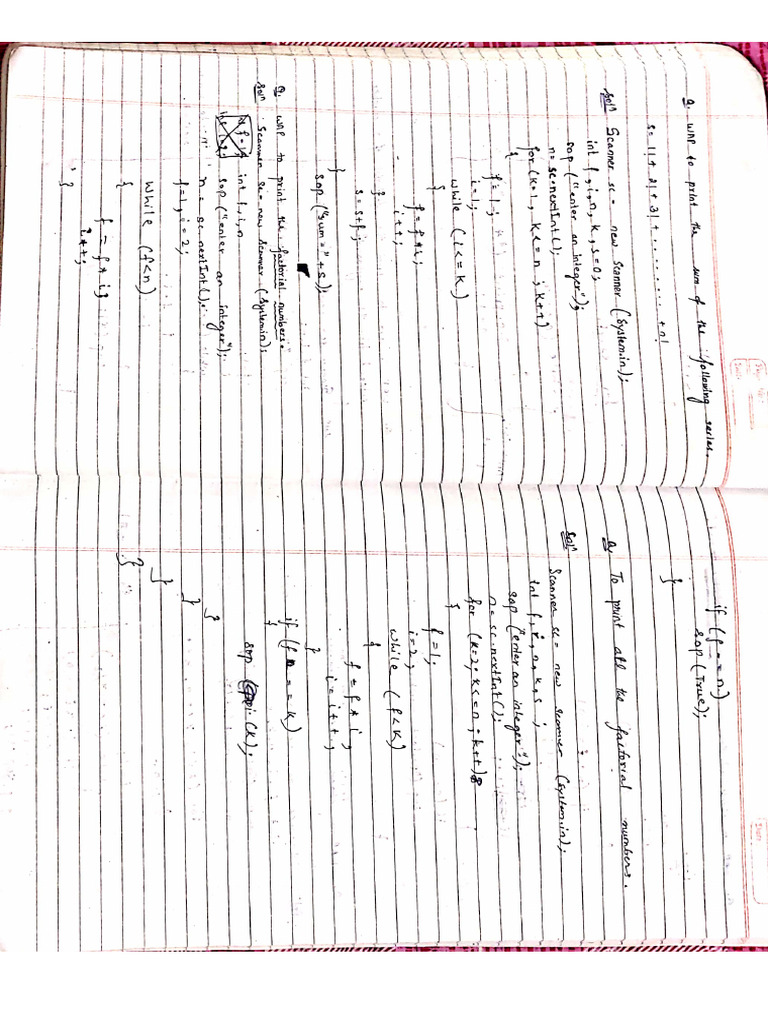 Q. WAP to print the sum of the following series.
s = 1! + 2! + 3! + ......... + n!
Soln Scanner sc = new Scanner (System.in);
int f, i, n, k, s=0;
sop ("enter an integer");
n = sc.nextInt();
for (k=1; k<=n; k++)
{
f = 1;
i = 1;
while (i <= k)
{
f = f * i;
i++;
}
s = s + f;
}
sop ("sum=" + s);
Q. WAP to print the factorial numbers.
Soln Scanner sc = new Scanner (System.in);
int f, i, n
sop ("enter an integer");
n = sc.nextInt();
f=1, i=2;
while (f<n)
{
f = f * i;
i++;
}
if (f == n)
sop (True);
}
Q To print all the factorial numbers.
Soln
Scanner sc = new Scanner (System.in);
int f, i, n, k, s ;
sop ("enter an integer");
n = sc.nextInt();
for (k=2; k<=n; k++)
{
f = 1;
i = 2;
while (f < k)
{
f = f * i;
i = i++;
}
if (f == k)
{
sop (k);
}
}
}
}